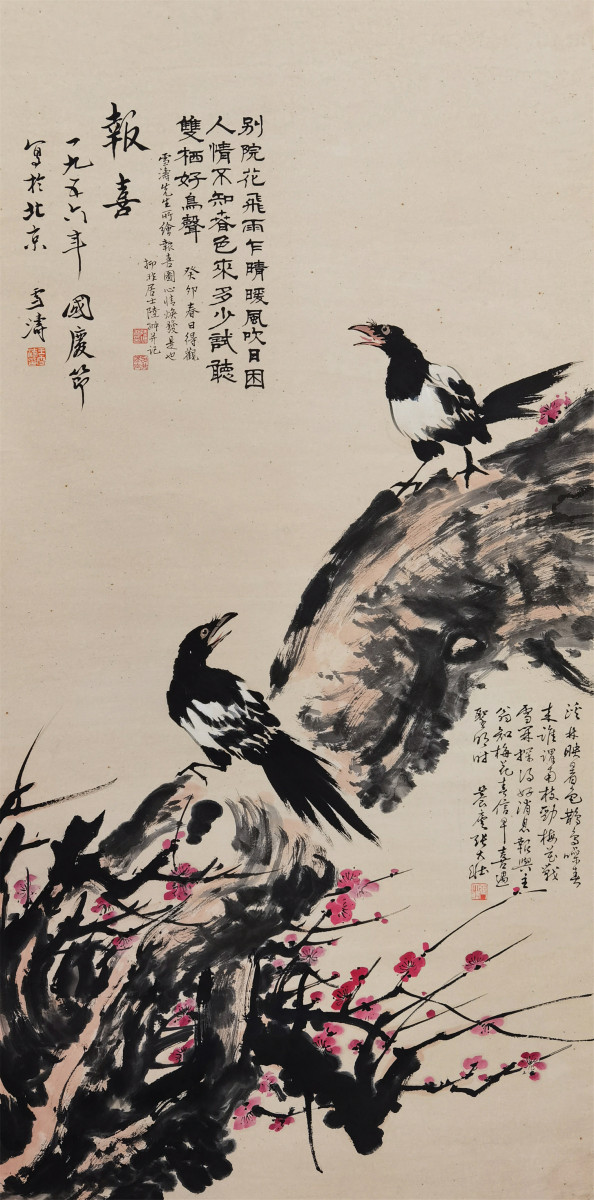 別院花飛雨乍晴暖風吹日困
人情不知春色來多少試聽
雙栖好鳥聲
癸卯春日得觀
雪濤先生所繪報喜圖心情煥發是也
柳非居士陸 并記
報喜
一九五六年 國慶節
寫於北京 雪濤
溪林映著色鵲鳥噪春
來誰謂南枝勁梅花戰
雪開探得好消息報與主
翁知梅花春信早喜遇
聖明時 農虔張大壯